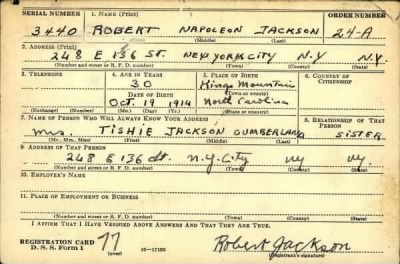 SERIAL NUMBER 1. NAME (Print) ORDER NUMBER
3440 ROBERT NAPOLEON JACKSON 24-A
(First) (Middle) (Last)
2. ADDRESS (Print)
248 E 136 ST. NEW YORK CITY N.Y N.Y.
(Number and street or R. F. D. number) (Town) (County) (State)
3. TELEPHONE 4. AGE IN YEARS 5. PLACE OF BIRTH 6. COUNTRY OF CITIZENSHIP
30 Kings Mountain
DATE OF BIRTH (Town or county)
OCT. 19 1914 North Carolina
(Exchange) (Number) (Mo.) (Day) (Yr.) (State or country)
7. NAME OF PERSON WHO WILL ALWAYS KNOW YOUR ADDRESS 8. RELATIONSHIP OF THAT PERSON
Mrs. TISHIE JACKSON CUMBERLAND SISTER
(Mr., Mrs., Miss) (First) (Middle) (Last)
9. ADDRESS OF THAT PERSON
248 E 136 St. N.Y. City NY NY.
(Number and street or R. F. D. number) (Town) (County) (State)
10. EMPLOYER'S NAME
11. PLACE OF EMPLOYMENT OR BUSINESS
(Number and street or R. F. D. number) (Town) (County) (State)
I AFFIRM THAT I HAVE VERIFIED ABOVE ANSWERS AND THAT THEY ARE TRUE.
REGISTRATION CARD 77
D. S. S. Form 1 (over) 16-17105 Robert Jackson
(Registrant's signature)